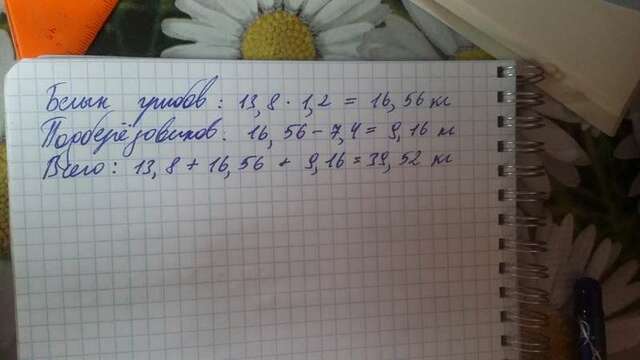 Белых грибов: 13,8 · 1,2 = 16,56 кг
Подберёзовиков: 16,56 - 7,4 = 9,16 кг
Всего: 13,8 + 16,56 + 9,16 = 39,52 кг